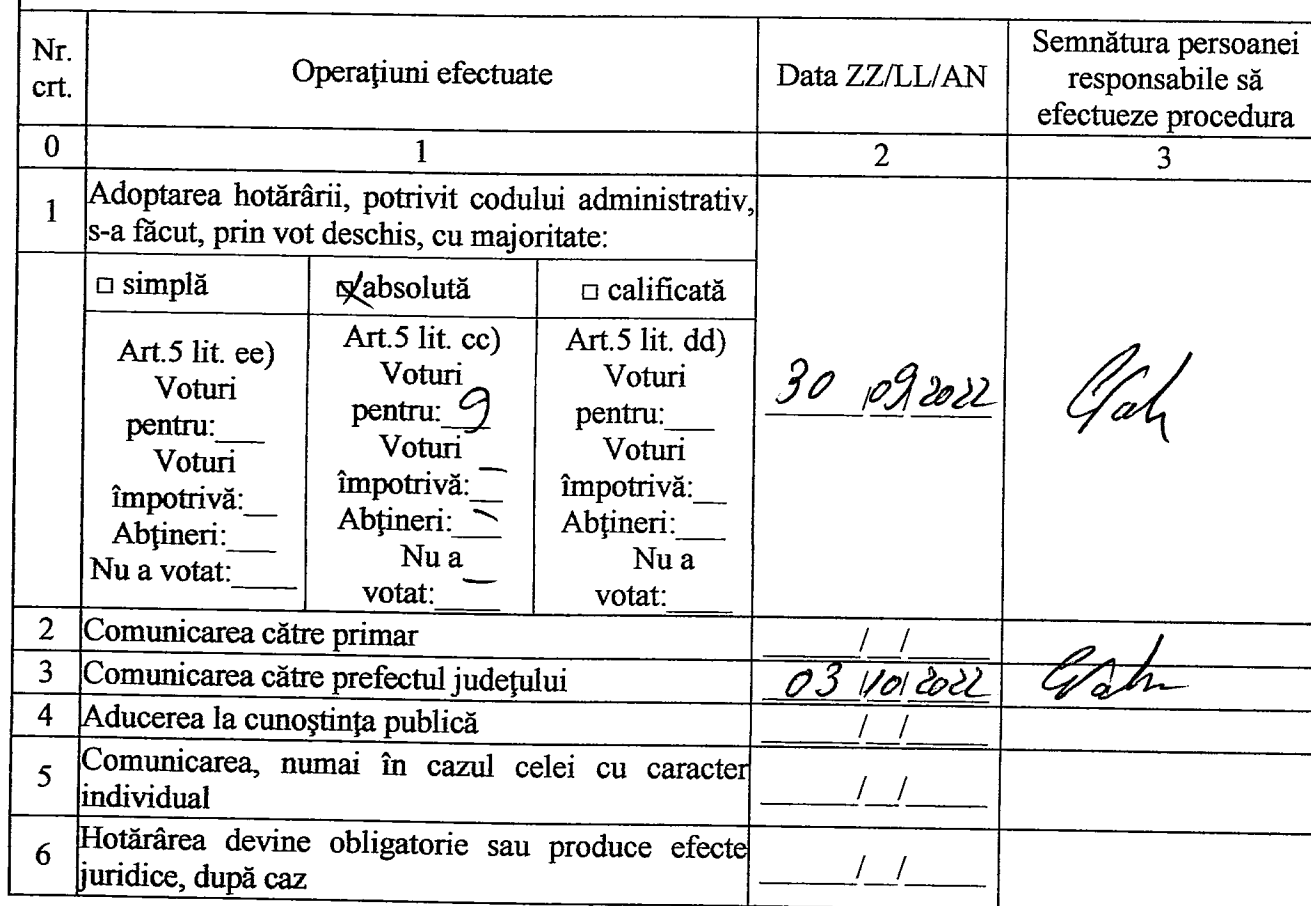 Nr. crt.
Operaţiuni efectuate
Data ZZ/LL/AN
Semnătura persoanei
responsabile să
efectueze procedura
0
1
2
3
1
Adoptarea hotărârii, potrivit codului administrativ,
s-a făcut, prin vot deschis, cu majoritate:
□ simplă
Art.5 lit. ee)
Voturi
pentru:___
Voturi
împotrivă:__
Abţineri:___
Nu a votat:____
☒ absolută
Art.5 lit. cc)
Voturi
pentru: 9
Voturi
împotrivă: –
Abţineri: –
Nu a
votat: –
□ calificată
Art.5 lit. dd)
Voturi
pentru:___
Voturi
împotrivă:__
Abţineri:___
Nu a
votat:____
30/09/2022
2
Comunicarea către primar
____/__/____
3
Comunicarea către prefectul judeţului
03/10/2022
4
Aducerea la cunoştinţa publică
____/__/____
5
Comunicarea, numai în cazul celei cu caracter
individual
____/__/____
6
Hotărârea devine obligatorie sau produce efecte
juridice, după caz
____/__/____